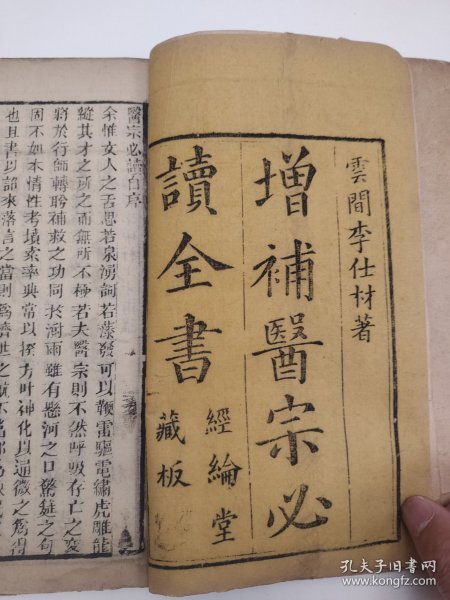 雲間李仕材著
增補醫宗必
讀全書
經綸堂
藏板
醫宗必讀自序
余惟文人之舌思若泉湧詞若藻發可以鞭雷驅電繡虎雕龍
縱其才之所之而無所不極若夫醫宗則不然呼吸存亡之變
將於行師轉聆補救之功同於河雨雖有懸河之口驚筵之句
固不如本情性考墳索率典常以揆方叶神化以通微之為得
也且書以詔來落言之當則為濟世之航不當
孔夫子旧书网
www.kongfz.com